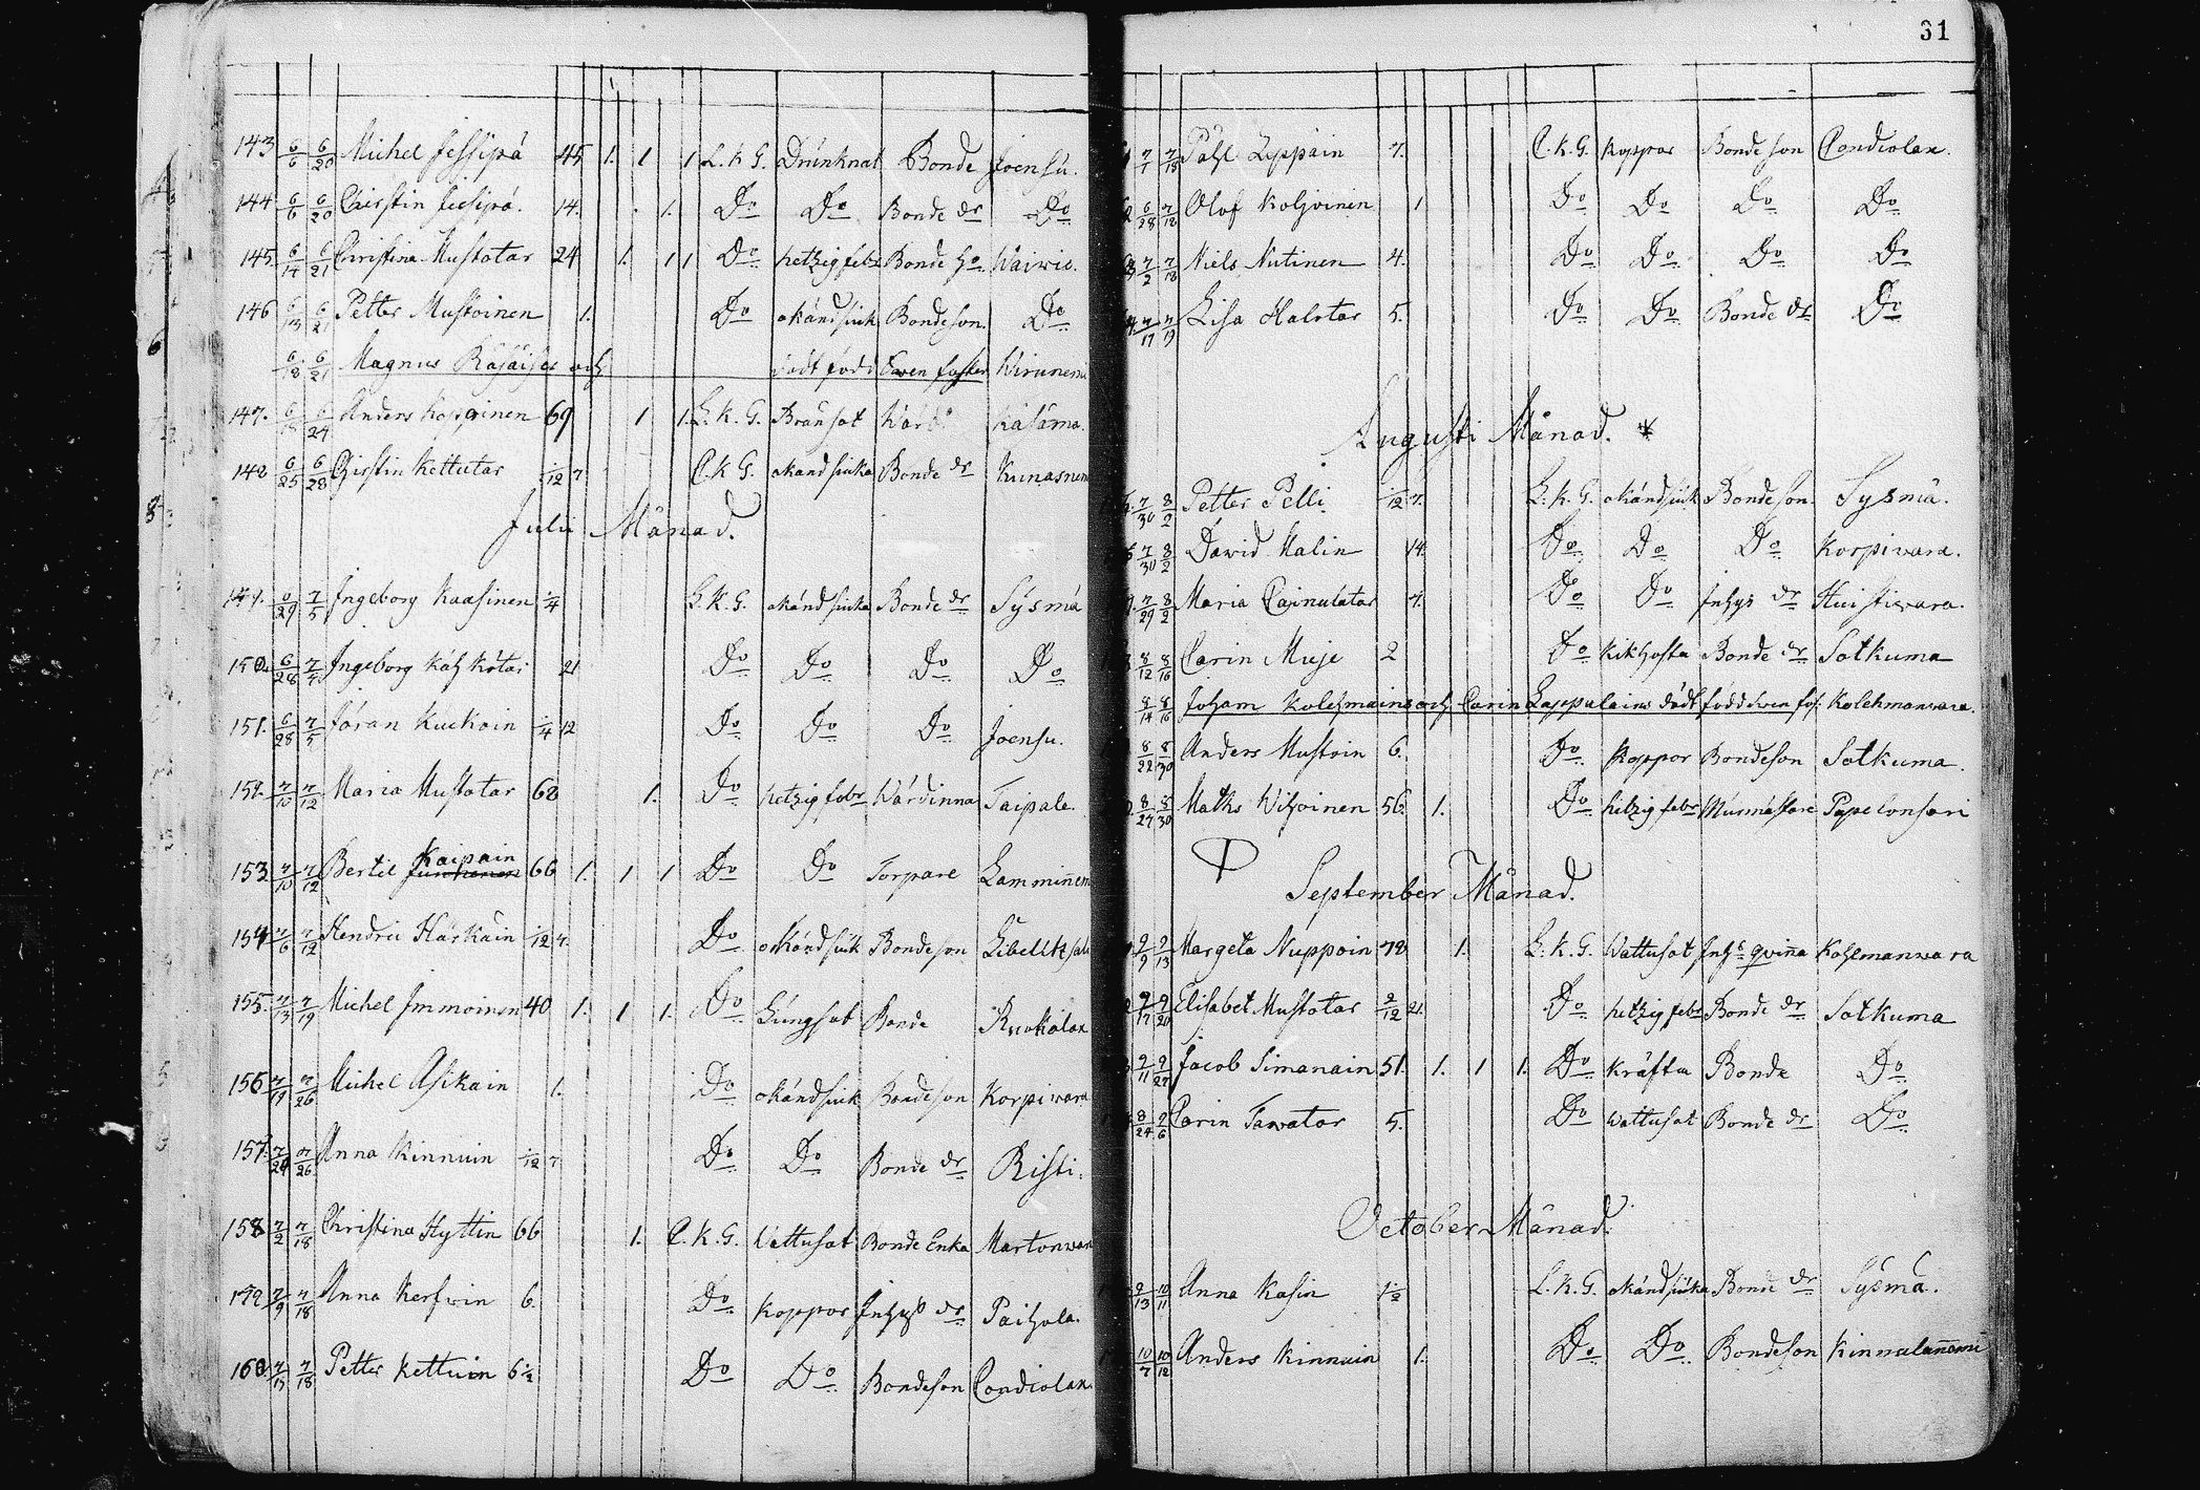 143 6/6 6/20 Michel Jessipä 45 1. 1 1 L.k.G. Drunknat Bonde Joensu.
144 6/6 6/20 Christin Jessipä. 14. 1. Do Do Bonde dr Do
145. 6/14 6/21 Christina Mustotar 24 1. 1 1 Do hetzig febr Bonde Ho Waiwio.
146 6/13 6/21 Petter Mustoinen 1. Do okändsiuk Bondeson. Do
6/18 6/21 Magnus Räsäises och dödt född Ewen foster Wirunemi
147. 6/24 Anders Koppinen 69 1 1 L.k.G. Bränsot Wärd: Käsämä.
148 6/25 6/28 Christin Kettutar 1/12 7 C.k.G. okändsiuka Bonde dr Kunasnem
Julii Månad.
149. 6/29 7/5 Ingeborg Kaasinen 1/4 L.k.G. okändsiuka Bonde dr Sysmä
150. 6/28 7/5 Ingeborg Kähkötar 21 Do Do Do Do
151. 6/28 7/5 Jöran Kuckoin 1/4 12 Do Do Do Joensu.
152. 7/10 7/12 Maria Mustotar 68 1. Do hetzig febr Wärdinna Taipale.
153 7/10 7/12 Bertil Kaipain 66 1. 1 1 Do Do Torpare Lamminem
154 7/6 7/12 Hendric Härkäin 1/12 7. Do okändsiuk Bondeson Libelitsala
155. 7/13 7/19 Michel Immoinen 40 1. 1 1. Do Lungsot Bonde Ruokolax
156 7/19 7/26 Michel Asikain 1. Do okändsiuk Bondeson Korpiwara
157. 7/20 7/26 Anna Kinnuin 1/12 7 Do Do Bonde dr Risti.
158 7/2 7/18 Christina Hyttin 66 1. C.k.G. Wattusot Bonde Enka Martonwar
159 7/9 7/18 Anna Kerfwin 6. Do Koppor Inhys dr Paihola.
160 7/15 7/18 Petter Kettuin 6 1/2 Do Do Bondeson Condiolax.
31
7/7 7/18 Påhl Lyppäin 7. C.k.G. Koppor Bondeson Condiolax.
6/28 7/18 Olof Koljoinen 1 Do Do Do Do
7/2 7/18 Niels Nutinen 4. Do Do Do Do
7/17 7/19 Lisa Halstar 5. Do Do Bonde dr Do
Augusti Månad.
7/30 8/2 Petter Pelli 1/12 7. L.k.G. okändsiuk Bondeson Sysmä.
7/30 8/2 Dawid Malin 14. Do Do Do Korpiwara.
7/29 8/2 Maria Cainulatar 7. Do Do Inhys dr Huistiwara.
8/12 8/16 Carin Muje 2 Do Kikhosta Bonde dr Sotkuma
8/14 8/16 Joham Kolehmains och Carin Lappalains dödt född ewen fos: Kolehmanwara.
8/22 8/30 Anders Mustoin 6. Do Koppor Bondeson Sotkuma.
8/27 8/30 Maths Wihoinen 56. 1. Do hetzig febr Murmästare Papelonsari
September Månad.
9/9 9/13 Margeta Nuppoin 78 1. L.k.G. Wattusot Inhs qvinna Kohlmanwara
9/17 9/20 Elisabet Mustotar 2/12 21. Do hetzig febr Bonde dr Sotkuma
9/11 9/27 Jacob Simanain 51. 1. 1 1. Do Kräfta Bonde Do
8/24 9/6 Carin Tawatar 5. Do Wattusot Bonde dr Do
October Månad.
9/13 10/11 Anna Kasin 1/2 L.k.G. okändsiuka Bonde dr Sysmä.
10/7 10/12 Anders Kinnuin 1. Do Do Bondeson Kinnalanemi